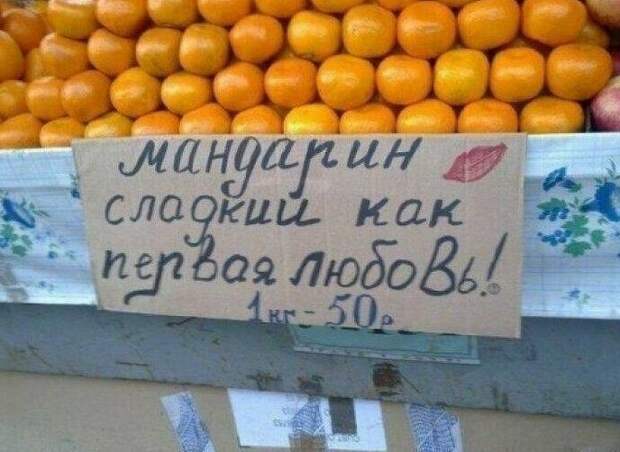 мандарин
сладкий как
первая любовь!
1кг-50р